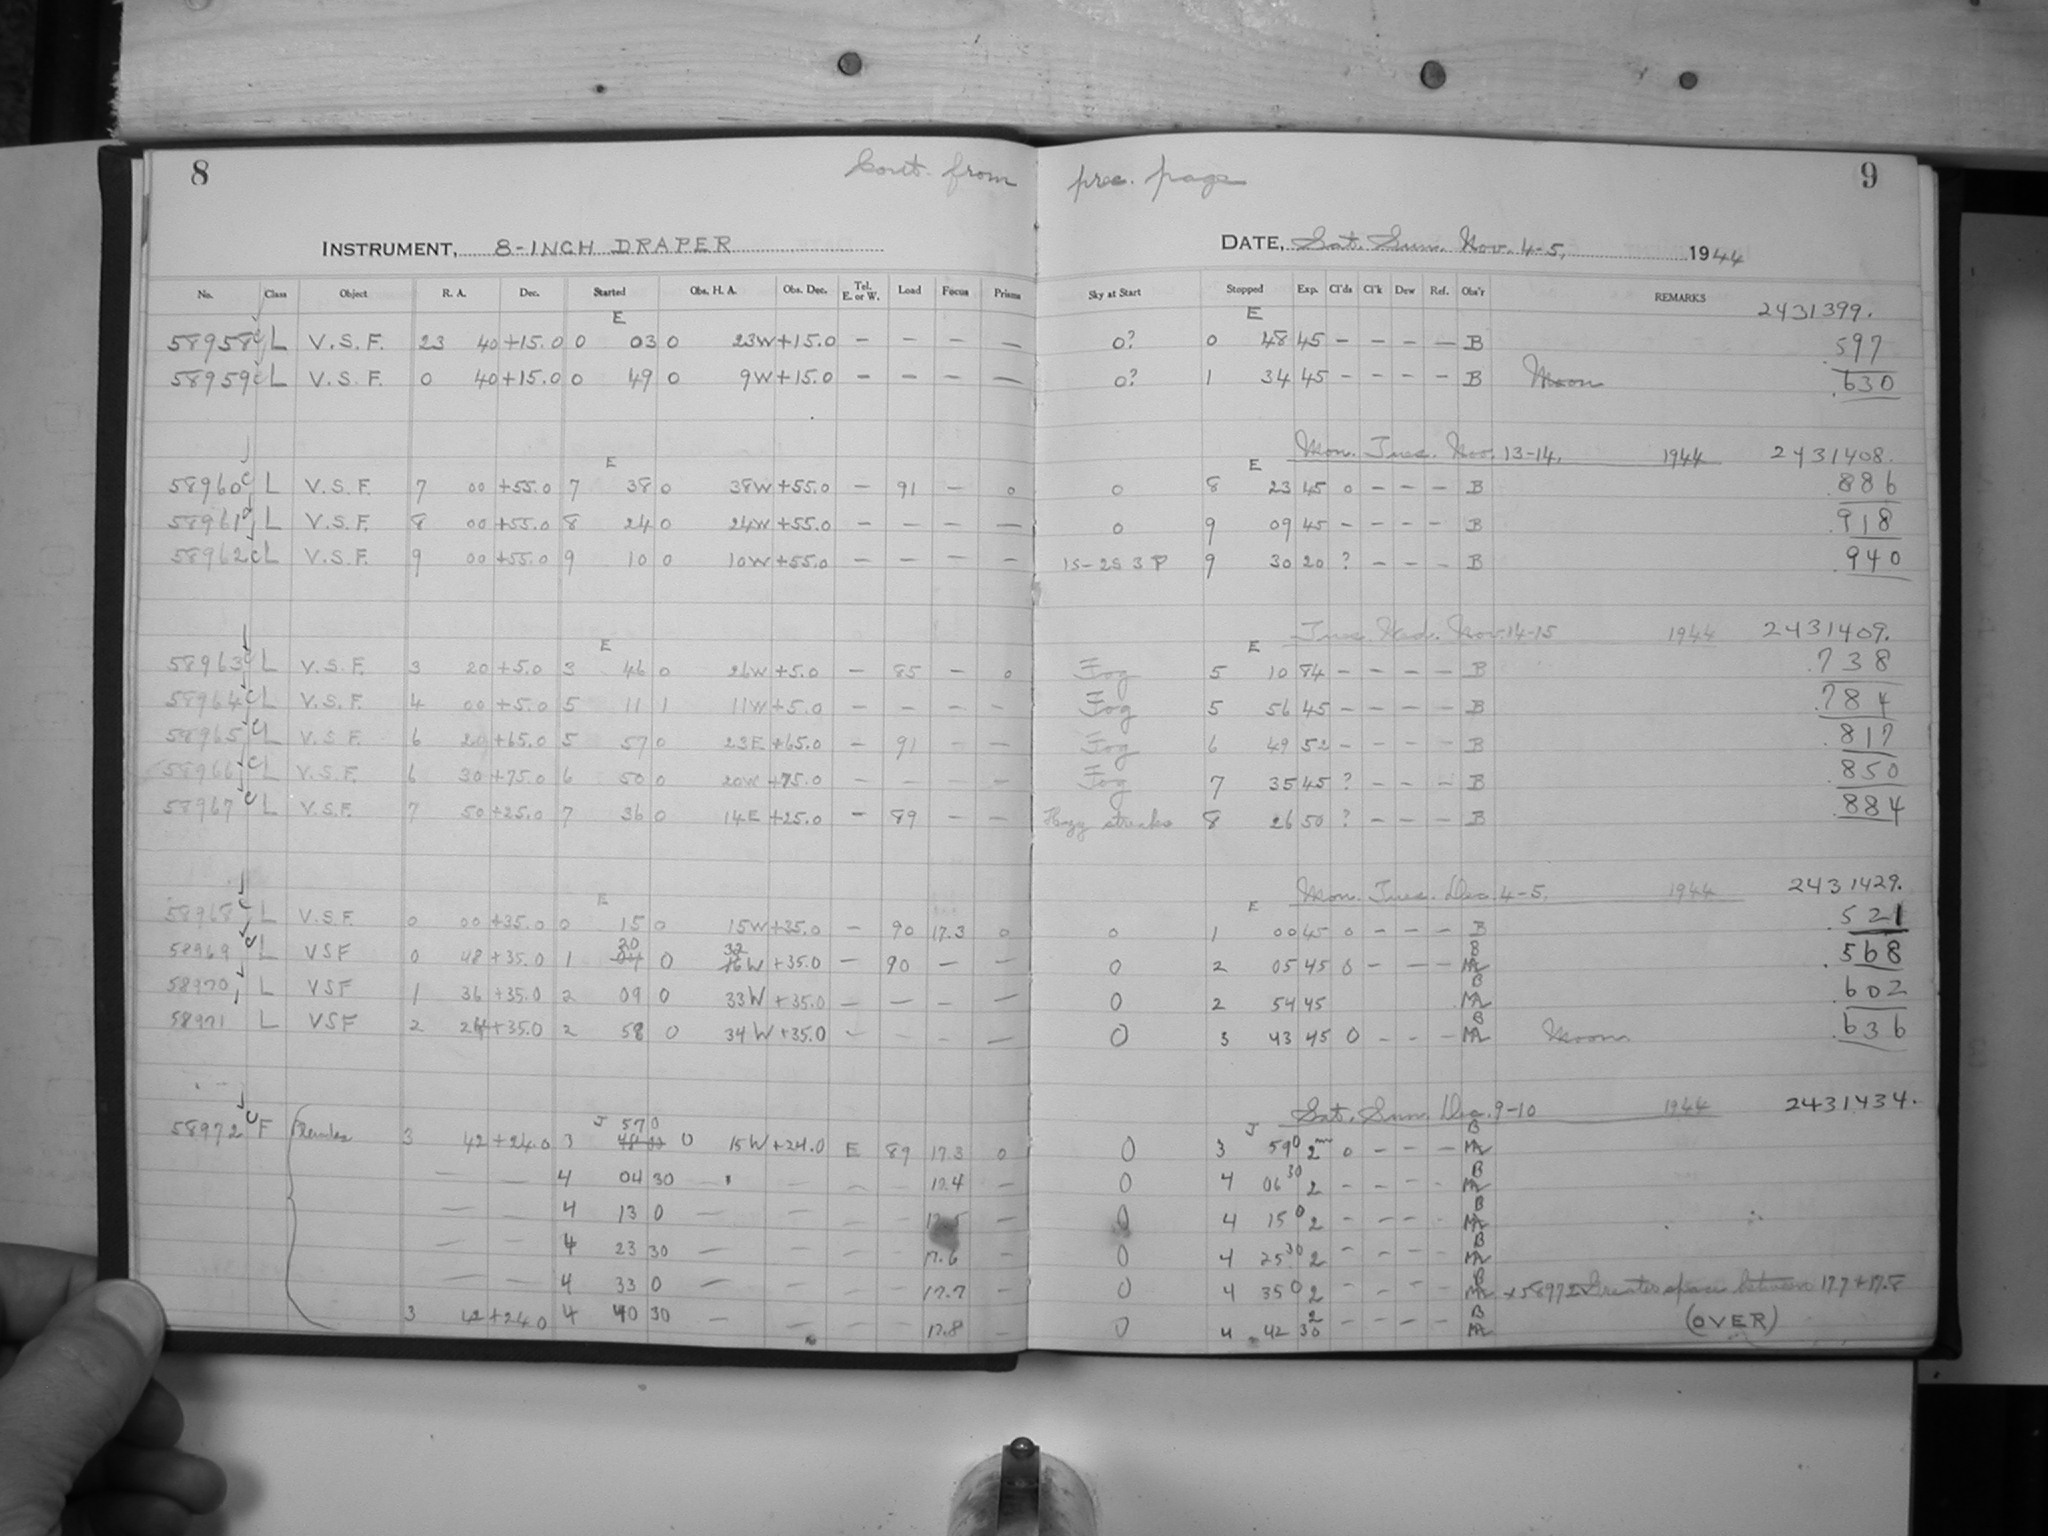 8 Cont. from prec. page 9
INSTRUMENT, 8-INCH DRAPER DATE, Sat. Sun. Nov. 4-5, 1944
No. Class Object R. A. Dec. Started Obs. H. A. Obs. Dec. Tel. E. or W. Load Focus Prisms Sky at Start Stopped Exp. Cl'ds Cl'k Dew Ref. Obs'r REMARKS
E E 2431399.
58958 c L V.S.F. 23 40 +15.0 0 03 0 23W +15.0 - - - - 0? 0 48 45 - - - - B .597
58959 c L V.S.F. 0 40 +15.0 0 49 0 9W +15.0 - - - - 0? 1 34 45 - - - - B Moon .630
Mon. Tues. Nov. 13-14, 1944 2431408.
E E
58960 c L V.S.F. 7 00 +55.0 7 38 0 38W +55.0 - 91 - 0 0 8 23 45 0 - - - B .886
58961 L V.S.F. 8 00 +55.0 8 24 0 24W +55.0 - - - - 0 9 09 45 - - - - B .918
58962 c L V.S.F. 9 00 +55.0 9 10 0 10W +55.0 - - - - 1S-2S 3 P 9 30 20 ? - - - B .940
Tues. Wed. Nov. 14-15 1944 2431409.
E E
58963 c L V.S.F. 3 20 +5.0 3 46 0 26W +5.0 - 85 - 0 Fog 5 10 84 - - - - B .738
58964 c L V.S.F. 4 00 +5.0 5 11 1 11W +5.0 - - - - Fog 5 56 45 - - - - B .784
58965 c L V.S.F. 6 20 +65.0 5 57 0 23E +65.0 - 91 - - Fog 6 49 52 - - - - B .817
58966 c L V.S.F. 6 30 +75.0 6 50 0 20W +75.0 - - - - Fog 7 35 45 ? - - - B .850
58967 c L V.S.F. 7 50 +25.0 7 36 0 14E +25.0 - 89 - - Hazy streaks 8 26 50 ? - - - B .884
Mon. Tues. Dec. 4-5, 1944 2431429.
E E
58968 c L V.S.F. 0 00 +35.0 0 15 0 15W +35.0 - 90 17.3 0 0 1 00 45 0 - - - B .521
58969 c L VSF 0 48 +35.0 1 20 0 32 W +35.0 - 90 - - 0 2 05 45 0 - - - B .568
58970 L VSF 1 36 +35.0 2 09 0 33W +35.0 - - - - 0 2 54 45 B .602
58971 L VSF 2 24 +35.0 2 58 0 34W +35.0 - - - - 0 3 43 45 0 - - - B Moon .636
Sat. Sun. Dec. 9-10 1944 2431434.
J J
58972 c F Pleiades 3 42 +24.0 3 57 0 0 15W +24.0 E 89 17.3 0 0 3 59 0 2m 0 - - - B
- - 4 04 30 - - - - 17.4 - 0 4 06 30 2 - - - - B
- - 4 13 0 - - - - 17.5 - 0 4 15 0 2 - - - - B
- - 4 23 30 - - - - 17.6 - 0 4 25 30 2 - - - - B
- - 4 33 0 - - - - 17.7 - 0 4 35 0 2 - - - B x 58972 Greater space between 17.7 + 17.8
3 42 +24.0 4 40 30 - - - - 17.8 - 0 4 42 30 2 - - - - B (OVER)